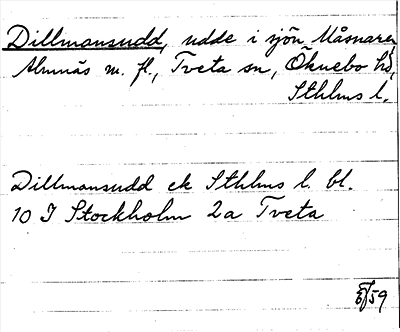 Dillmansudd, udde i sjön Måsnaren,
Almnäs m. fl., Tveta sn, Öknebo hd,
Sthlms l.
Dillmansudd ek Sthlms l. bl.
10 I Stockholm 2a Tveta
/59